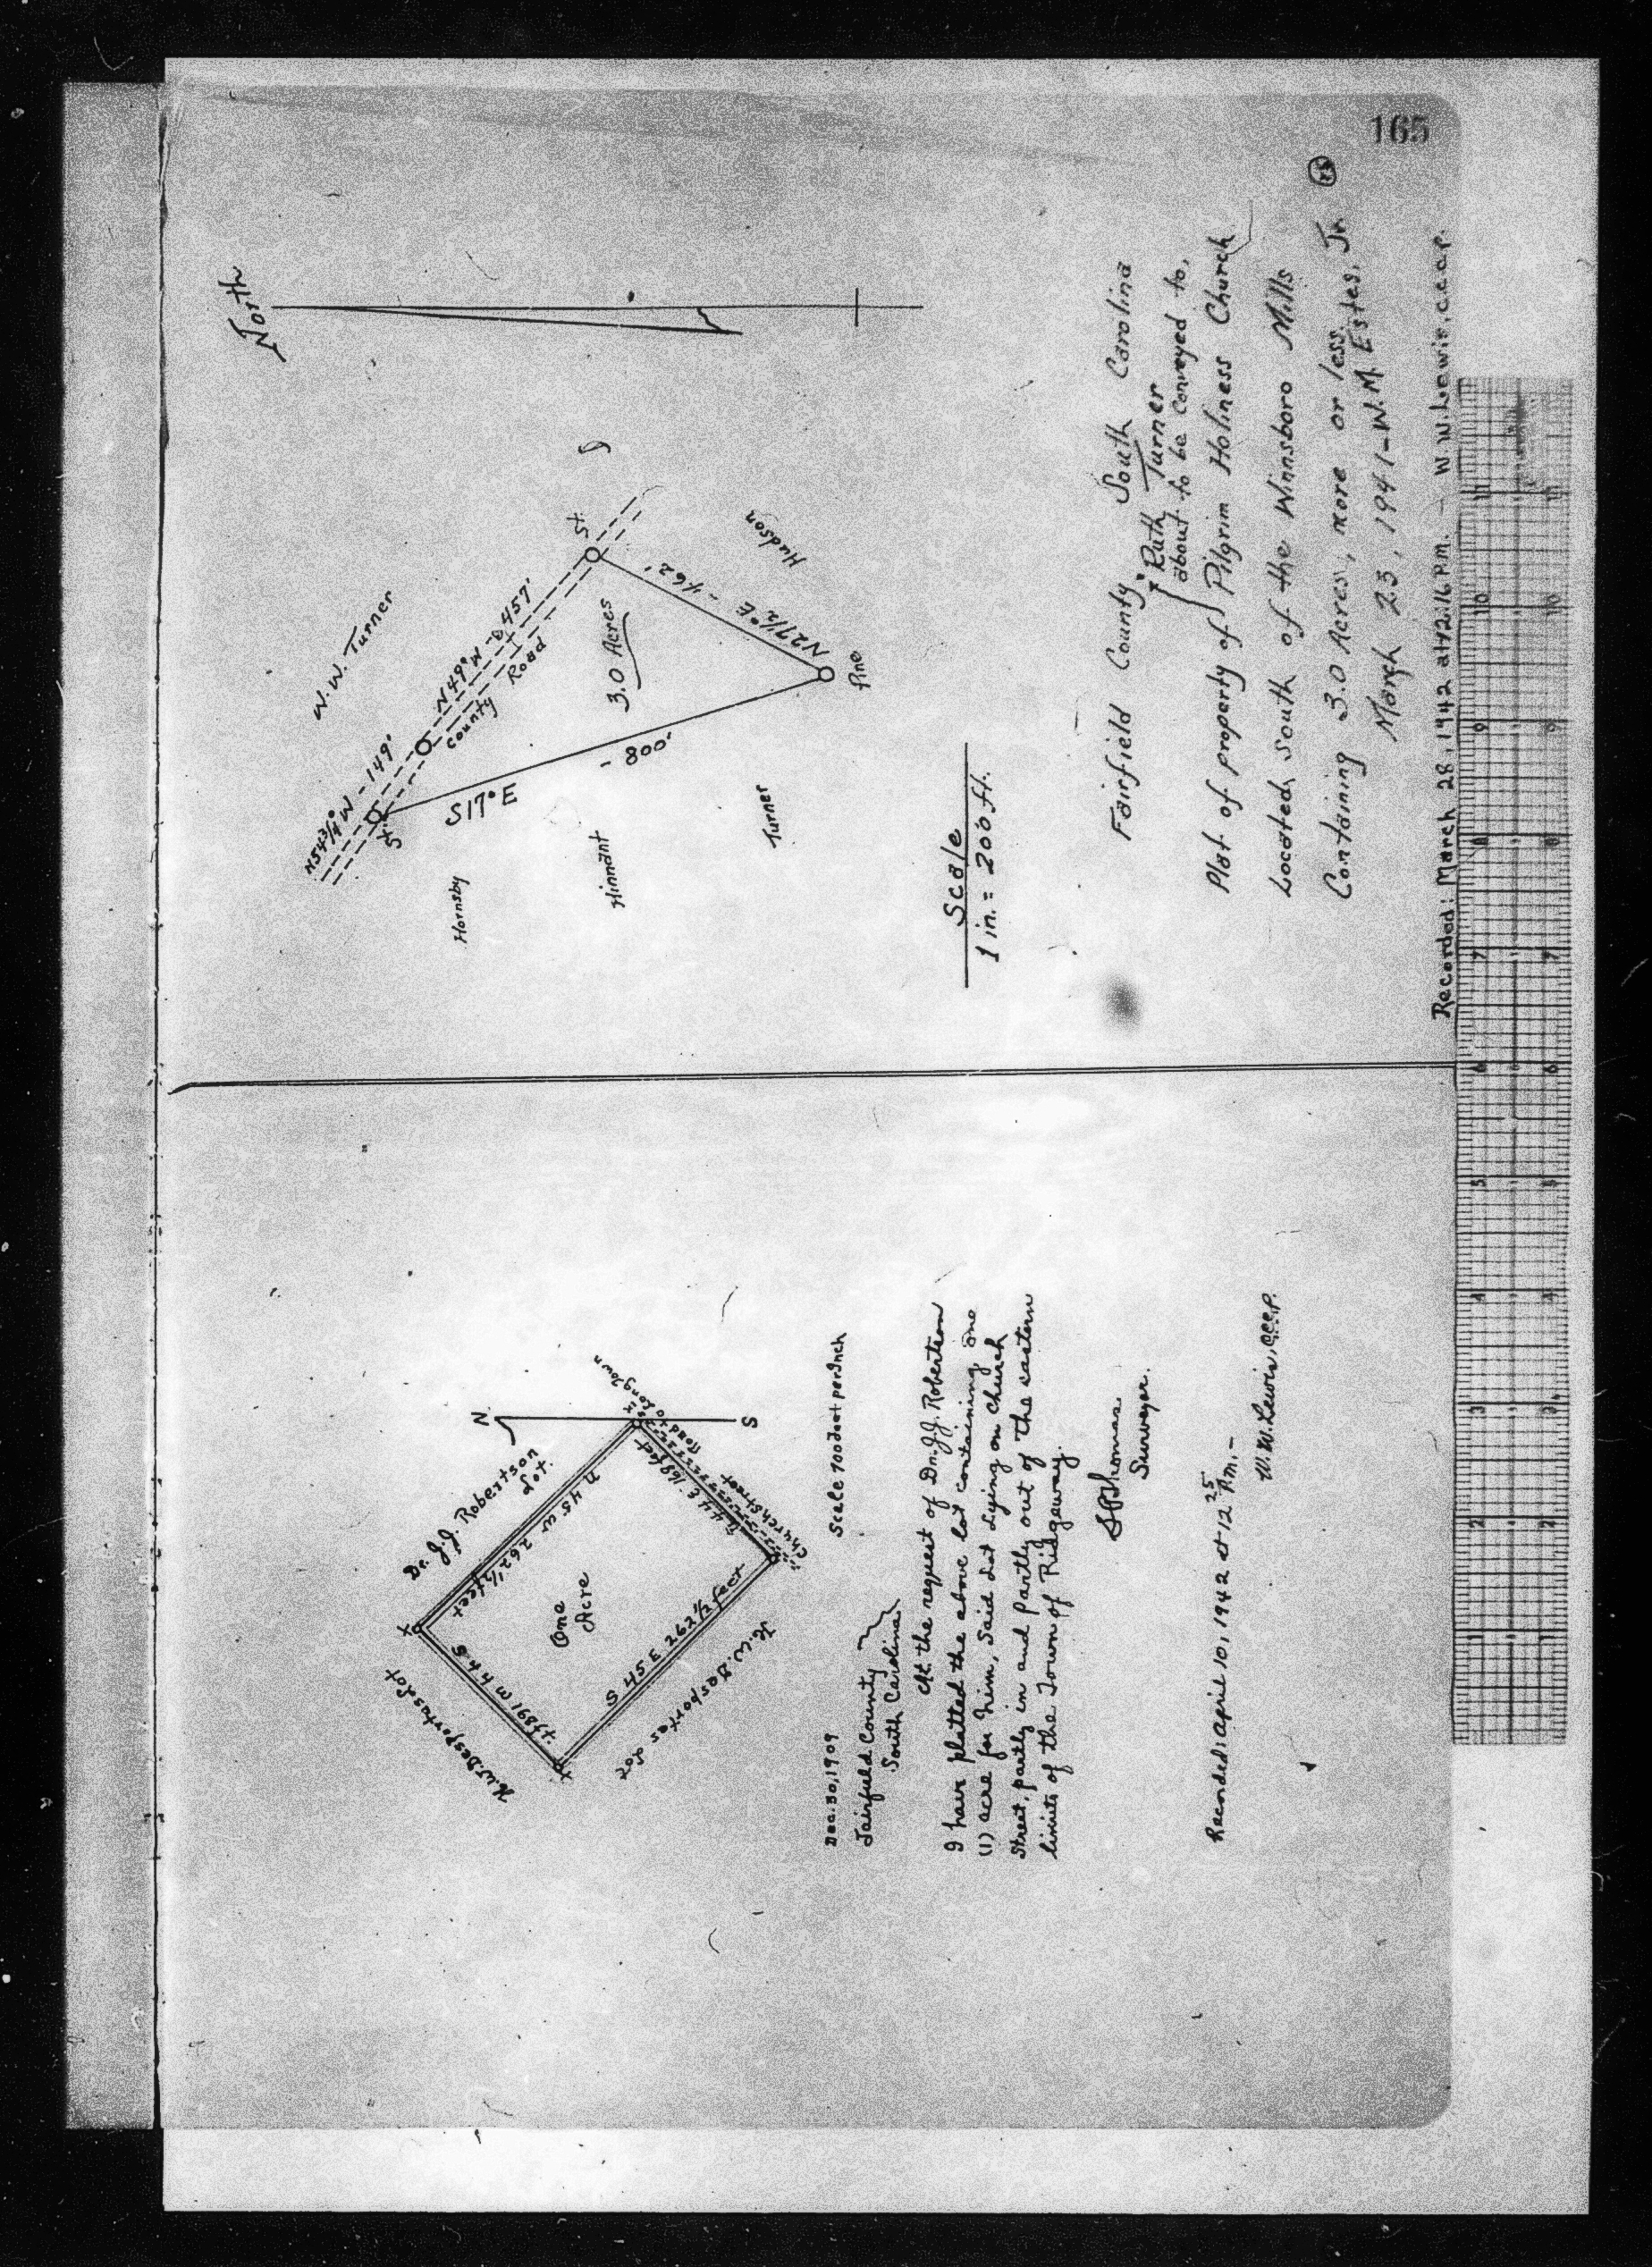 165
North
W. W. Turner
N54 3/4° W - 149'
N 49° W - 457'
County Road
St.
St.
3.0 Acres
N27 1/2° E - 462'
Hudson
S17° E - 800'
Pine
Hornsby
Hinnant
Turner
Scale
1 in. = 200 ft.
Fairfield County South Carolina
Ruth Turner
about to be Conveyed to,
Plat of property of Pilgrim Holiness Church
Located South of the Winnsboro Mills
Containing 3.0 Acres, more or less.
March 23, 1941 - W.M. Estes, Jr.
Recorded: March 28, 1942 at 12:16 P.m. - W.W. Lewis, C.C.C.P.
N
S
Dr. J.J. Robertson
Lot.
N 45 W 262 1/2 feet
Road to Longtown
N 44 E 168 feet
Church Street
One
Acre
S 44 W 168 ft.
S 45 E 262 1/2 feet
H.W. Desportes Lot
H.W. Desportes Lot
Scale 100 feet per Inch
Dec. 30, 1909
Fairfield County
South Carolina
At the request of Dr. J.J. Robertson
I have platted the above lot containing one
(1) acre for him, Said Lot Lying on Church
Street, partly in and Partly out of the eastern
limits of the Town of Ridgeway.
Thomas
Surveyor.
Recorded: April 10, 1942 at 12 25 P.m. -
W.W. Lewis, C.C.C.P.
11
10
9
8
7
6
5
4
3
2
1